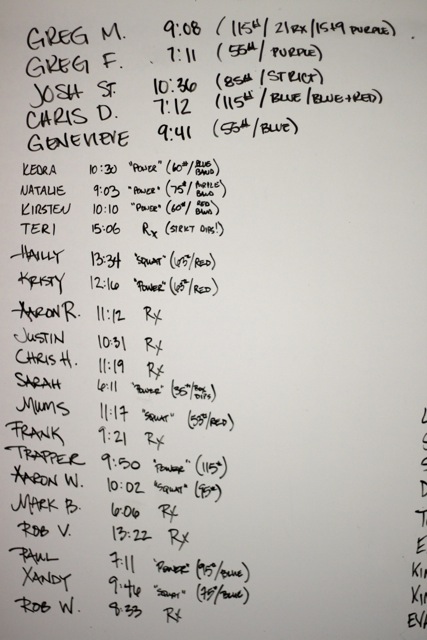 GREG M. 9:08 (115# / 21 RX / 15+9 PURPLE)
GREG F. 7:11 (55# / PURPLE)
JOSH ST. 10:36 (85# / STRICT)
CHRIS D. 7:12 (115# / BLUE / BLUE+RED)
GENEVIEVE 9:41 (55# / BLUE)
KEORA 10:30 "POWER" (60# / BLUE BAND)
NATALIE 9:03 "POWER" (75# / PURPLE BAND)
KIRSTEN 10:10 "POWER" (60# / RED BAND)
TERI 15:06 Rx (STRICT DIPS!)
HAILLY 13:34 "SQUAT" (65# / RED)
KRISTY 12:16 "POWER" (65# / RED)
AARON R. 11:12 Rx
JUSTIN 10:31 Rx
CHRIS H. 11:19 Rx
SARAH 6:11 "POWER" (35# / BOX DIPS)
MUMS 11:17 "SQUAT" (55# / RED)
FRANK 9:21 Rx
TRAPPER 9:50 "POWER" (115#)
AARON W. 10:02 "SQUAT" (95#)
MARK B. 6:06 Rx
ROB V. 13:22 Rx
PAUL 7:11 "POWER" (95# / BLUE)
XANDY 9:46 "SQUAT" (75# / BLUE)
ROB W. 8:33 Rx